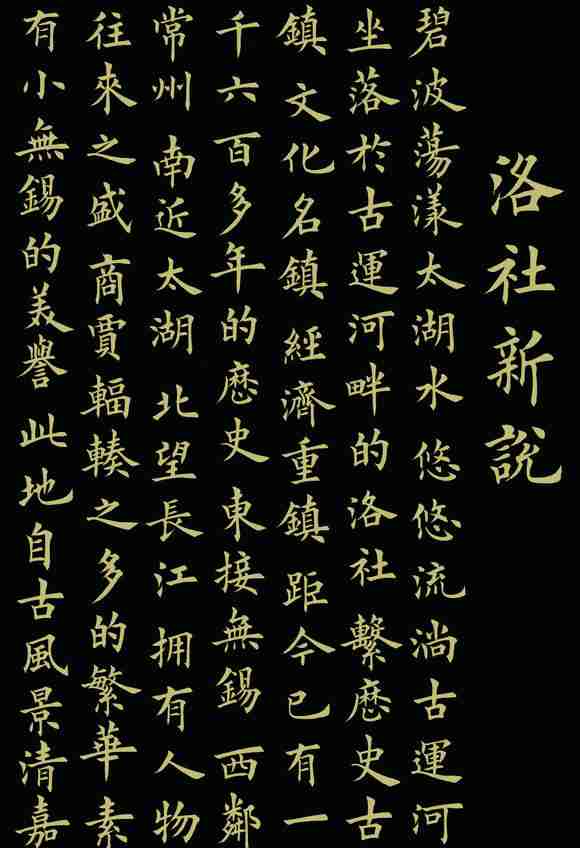 洛社新說
碧波蕩漾太湖水悠悠流淌古運河
坐落於古運河畔的洛社繫歷史古
鎮文化名鎮經濟重鎮距今已有一
千六百多年的歷史東接無錫西鄰
常州南近太湖北望長江拥有人物
往來之盛商賈輻輳之多的繁華素
有小無錫的美譽此地自古風景清嘉